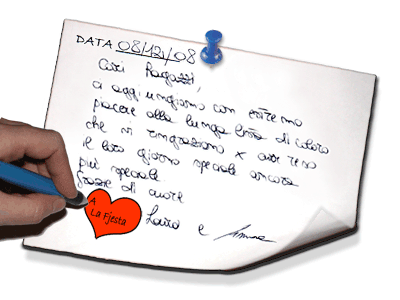 DATA 08/12/08
Cari Ragazzi,
ci aggiungiamo con estremo
piacere alla lunga lista di coloro
che vi ringraziano x aver reso
il loro giorno speciale ancora
più speciale.
Grazie di cuore
A
La Fjesta
Laura e